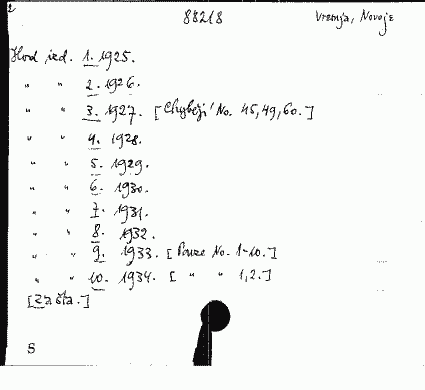 2 88218 Vremja, Novoje
Hod izd. 1. 1925.
" " 2. 1926.
" " 3. 1927. [Chybějí No. 45, 49, 60.]
" " 4. 1928.
" " 5. 1929.
" " 6. 1930.
" " 7. 1931.
" " 8. 1932.
" " 9. 1933. [Pouze No. 1-10.]
" " 10. 1934. [ " " 1, 2.]
[Zašta.]
S